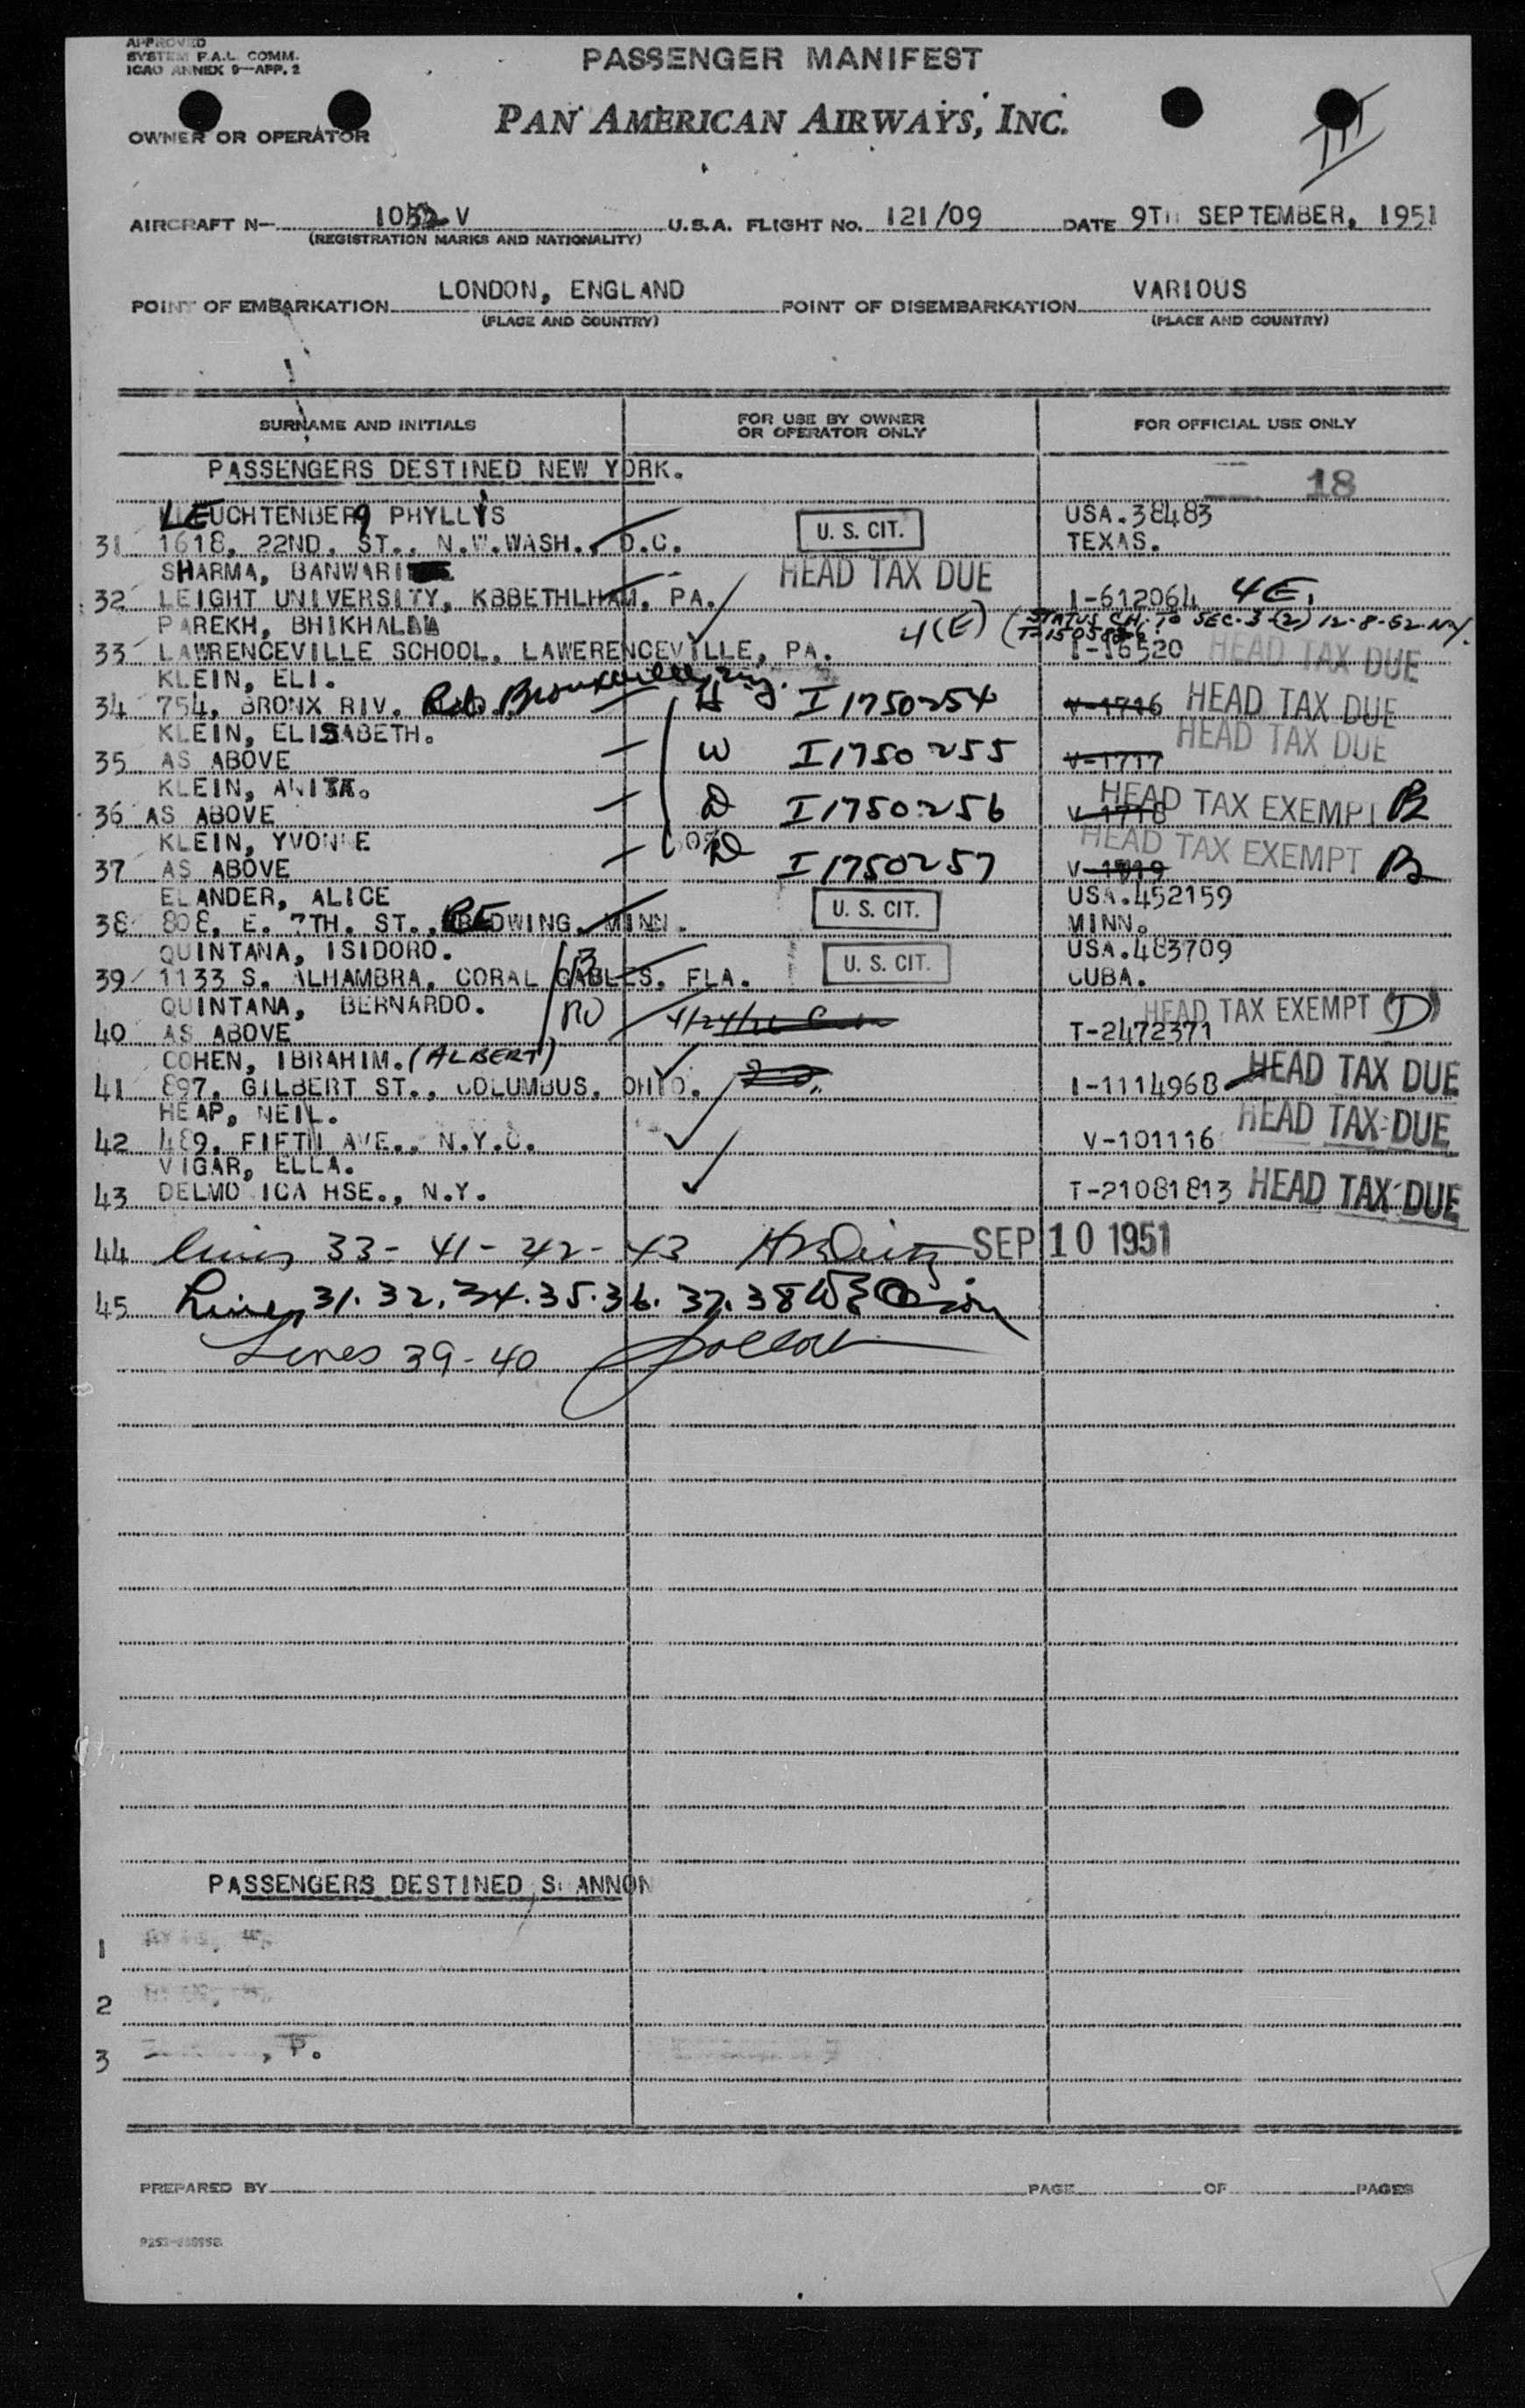 APPROVED
SYSTEM F.A.L. COMM.
ICAO ANNEX 9—APP. 2
PASSENGER MANIFEST
OWNER OR OPERATOR
PAN AMERICAN AIRWAYS, INC.
AIRCRAFT N- 1052 V U.S.A. FLIGHT NO. 121/09 DATE 9TH SEPTEMBER, 1951
(REGISTRATION MARKS AND NATIONALITY)
POINT OF EMBARKATION LONDON, ENGLAND POINT OF DISEMBARKATION VARIOUS
(PLACE AND COUNTRY) (PLACE AND COUNTRY)
SURNAME AND INITIALS FOR USE BY OWNER OR OPERATOR ONLY FOR OFFICIAL USE ONLY
PASSENGERS DESTINED NEW YORK.
18
LEUCHTENBERg PHYLLIS USA.38483
31 1618, 22ND. ST., N.W.WASH., D.C. U. S. CIT. TEXAS.
SHARMA, BANWARI HEAD TAX DUE
32 LEIGHT UNIVERSITY, KBBETHLHAM, PA. I-612064 4E.
PAREKH, BHIKHALAL 4(E) (STATUS CH. TO SEC. 3 (2) 12-8-52 NY.
33 LAWRENCEVILLE SCHOOL, LAWERENCEVILLE, PA. I-16520 HEAD TAX DUE
KLEIN, ELI.
34 754, BRONX RIV. Rd. Bronxville, N.Y. H I1750254 V-1716 HEAD TAX DUE
KLEIN, ELISABETH.
35 AS ABOVE W I1750255 V-1717 HEAD TAX DUE
KLEIN, ANITA.
36 AS ABOVE D I1750256 V-1718 HEAD TAX EXEMPT B
KLEIN, YVONNE
37 AS ABOVE D I1750257 V-1719 HEAD TAX EXEMPT B
ELANDER, ALICE USA.452159
38 808, E. 7TH. ST., REDWING, MINN. U. S. CIT. MINN.
QUINTANA, ISIDORO. USA.483709
39 1133 S. ALHAMBRA, CORAL GABLES, FLA. U. S. CIT. CUBA.
QUINTANA, BERNARDO. HEAD TAX EXEMPT (D)
40 AS ABOVE T-2472371
COHEN, IBRAHIM. (ALBERT)
41 897, GILBERT ST., COLUMBUS, OHIO. I-1114968 HEAD TAX DUE
HEAP, NEIL.
42 489, FIFTH AVE., N.Y.C. V-101116 HEAD TAX DUE
VIGAR, ELLA.
43 DELMONICA HSE., N.Y. T-21081813 HEAD TAX DUE
44 Lines 33- 41- 42- 43 SEP 10 1951
45 Lines 31. 32. 34. 35. 36. 37. 38
Lines 39-40
PASSENGERS DESTINED SHANNON
1
2
3 , P.
PREPARED BY PAGE OF PAGES